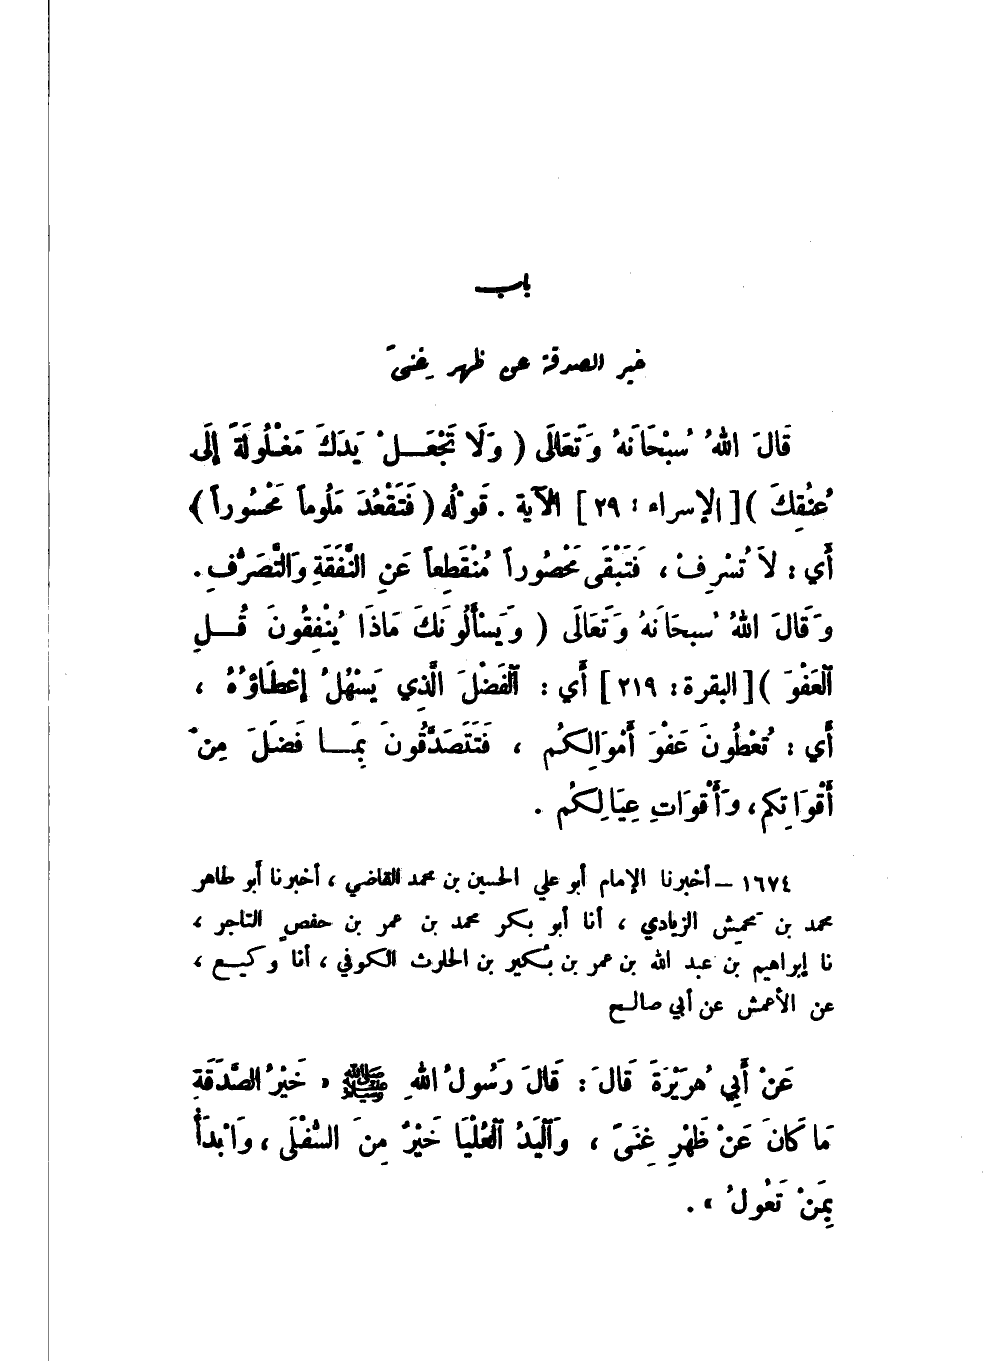 باب
خير الصدقة عن ظهر غِنىً
قَالَ اللهُ سُبْحَانَهُ وَتَعَالَى ( وَلَا تَجْعَـلْ يَدَكَ مَغْلُولَةً إِلَى
عُنُقِكَ )[الإسراء : ٢٩] الآية . قَوْلُه ( فَتَقْعُدَ مَلُوماً مَحْسُوراً )
أَي : لاَ تُسْرِفْ ، فَتَبْقَى مَحْصُوراً مُنْقَطِعاً عَنِ النَّفَقَةِ وَالتَّصَرُّفِ .
وَقَالَ اللهُ سُبحَانَهُ وَتَعَالَى ( وَيَسْأَلُونَكَ مَاذَا يُنْفِقُونَ قُـلِ
الْعَفْوَ )[البقرة : ٢١٩] أَي : الْفَضْلَ الَّذِي يَسْهُلُ إِعْطَاؤُهُ ،
أَي : تُعْطُونَ عَفْوَ أَمْوَالِكُم ، فَتَتَصَدَّقُونَ بِمَـا فَضَلَ مِنْ
أَقْوَاتِكم ، وَأَقْوَاتِ عِيَالِكُم .
١٦٧٤ – أخبرنا الإمام أبو علي الحسين بن محمد القاضي ، أخبرنا أبو طاهر
محمد بن مَحمِش الزيادي ، أنا أبو بكر محمد بن عمر بن حفصٍ التاجر ،
نا إبراهيم بن عبد الله بن عمر بن بُكير بن الحارث الكوفي ، أنا وكيـع ،
عن الأعمش عن أبي صالـح
عَنْ أَبِي هُرَيْرَةَ قَالَ : قَالَ رَسُولُ اللهِ ﷺ « خَيْرُ الصَّدَقَةِ
مَا كَانَ عَنْ ظَهْرِ غِنىً ، وَالْيَدُ الْعُلْيَا خَيْرٌ مِنَ السُّفْلَى ، وَابْدَأْ
بِمَنْ تَعُولُ » .